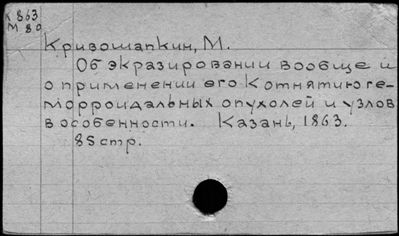 К 863
М 80
Кривошапкин, М.
Об экразировании вообще и
о применении его к отнятию ге-
морроидальных опухолей и узлов
в особенности. Казань, 1863.
85 стр.